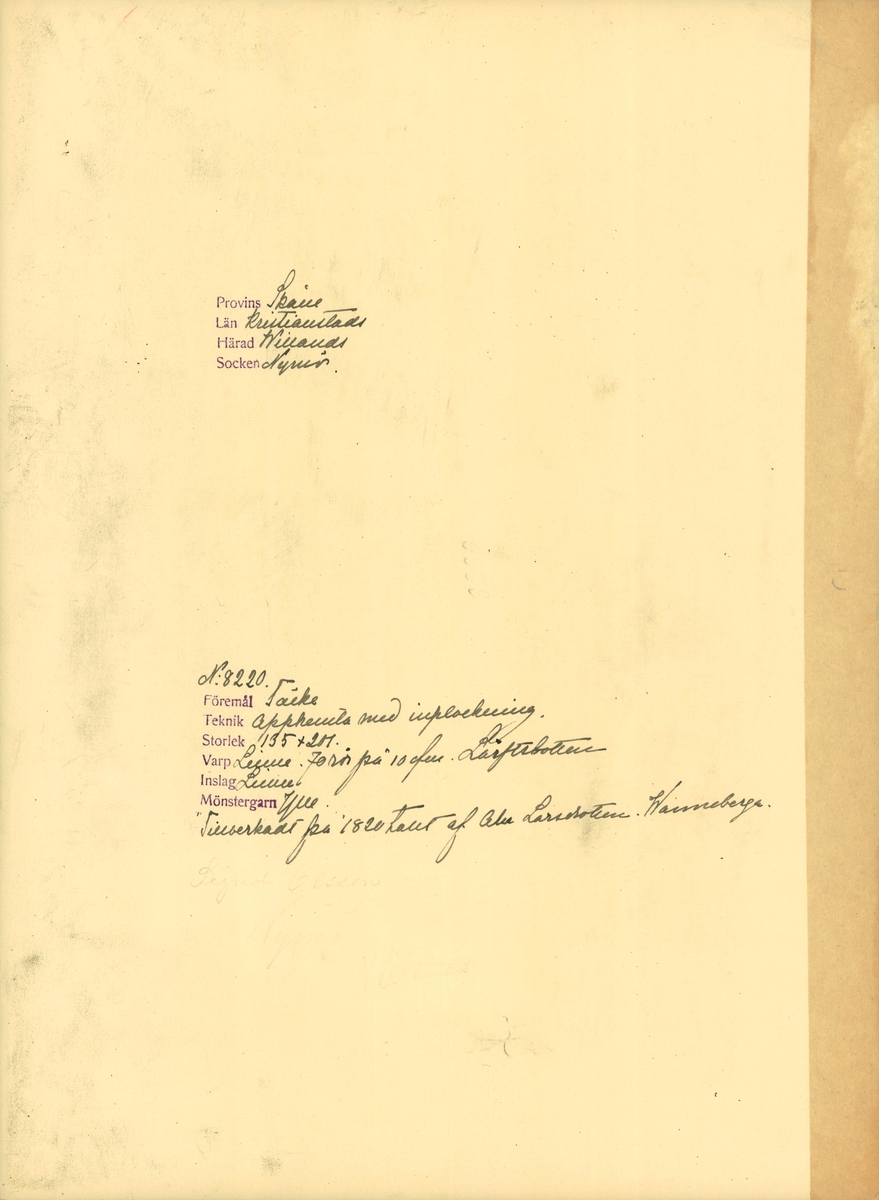 Provins Skåne
Län Kristianstads
Härad Willands
Socken Nymö.
N:8220.
Föremål Täcke
Teknik Opphemta med inplockning.
Storlek 135 x 201.
Varp Linne. 70 rör på 10 c/m. Lärftsbotten
Inslag Linne.
Mönstergarn Ylle.
Tillverkadt på 1820 talet af Larsdotter. Wanneberga.
Olsson